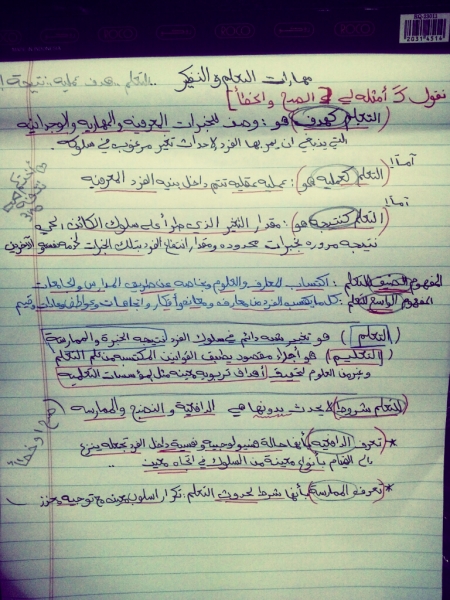 مهارات التعلم والتفكير
التعلم: هدف، عملية، نتيجة
نقول 3 أمثلة لي في الصح والخطأ]
(التعلم كهدف) هو: وصف للخبرات المعرفية والمهارية والوجدانية
التي ينبغي ان يمر بها الفرد لاحداث تغير مرغوب في سلوكه.
أمـا:
التعلم كعملية هو: عملية عقلية تتم داخل بنية الفرد المعرفية
أمـا:
(التعلم كنتيجة هو: مقدار التغير الذي طرأ على سلوك الكائن الحي
نتيجة مروره بخبرات محدوده ومقدار انتفاع الفرد بتلك الخبرات
المفهوم الضيق للتعلم: اكتساب للمعارف والعلوم وبخاصة عن طريق المدارس والجامعات
المفهوم الواسع للتعلم: كل ما يكتسبه الفرد من معارف ومعاني وأفكار واتجاهات وعواطف وعادات وقيم
(التعلم) هو تغير شبه دائم في سلوك الفرد نتيجة الخبرة والممارسة
(التعليم) هو إجراء مقصود يطبق القوانين المكتسبة من علم التعلم
وغيرها من العلوم لتحقيق أهداف تربوية معينة مثل المؤسسات التعليمية
للتعلم شروط لا يحدث بدونها هي الدافعية و النضج والممارسة
(صح او خطأ)
* تعرف الدافعية بأنها حالة فسيولوجية ونفسية داخل الفرد تجعله ينزع
الى القيام بأنواع معينة من السلوك في اتجاه معين..
* تعرف الممارسة بأنها شرط لحدوث التعلم: تكرار اسلوب معين مع توجيه معزز
20314314